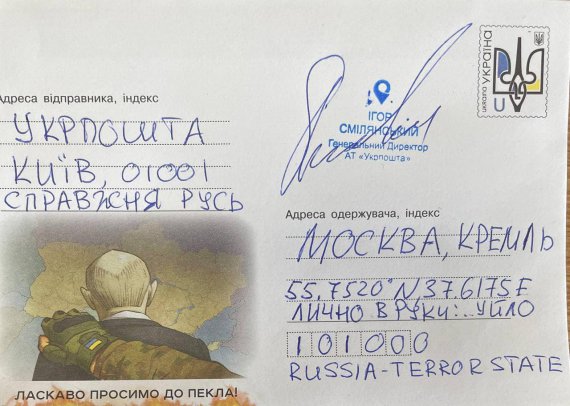 Адреса відправника, індекс
УКРПОШТА
КИЇВ, 01001
СПРАВЖНЯ РУСЬ
ЛАСКАВО ПРОСИМО ДО ПЕКЛА!
ІГОР
СМІЛЯНСЬКИЙ
Генеральний Директор
АТ «Укрпошта»
УКРАЇНА
U
Адреса одержувача, індекс
МОСКВА, КРЕМЛЬ
55.7520°N, 37.6175E
ЛИЧНО В РУКИ: ..УЙЛО
101000
RUSSIA-TERROR STATE